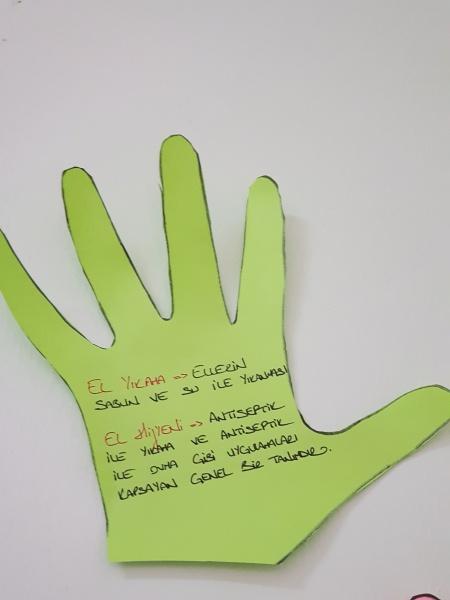 EL YIKAMA => ELLERİN
SABUN VE SU İLE YIKANMASI
EL HİJYENİ => ANTİSEPTİK
İLE YIKAMA VE ANTİSEPTİK
İLE OVMA GİBİ UYGULAMALARI
KAPSAYAN GENEL BİR TANIMDIR.